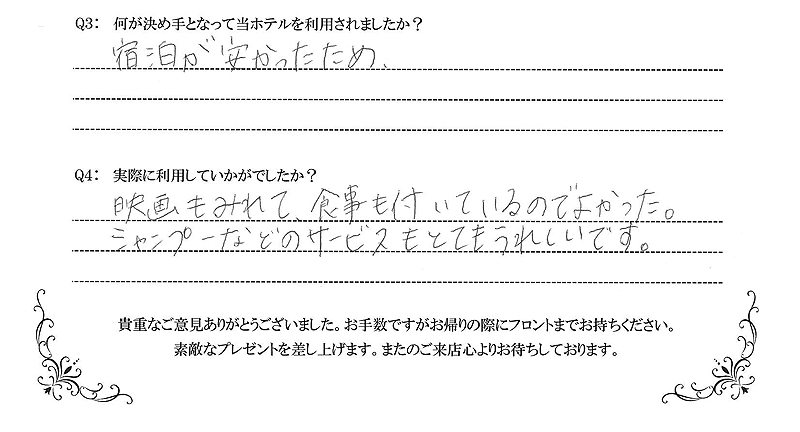 Q3： 何が決め手となって当ホテルを利用されましたか？
宿泊が安かったため、
Q4： 実際に利用していかがでしたか？
映画もみれて、食事も付いているのでよかった。
シャンプーなどのサービスもとてもうれしいです。
貴重なご意見ありがとうございました。お手数ですがお帰りの際にフロントまでお持ちください。
素敵なプレゼントを差し上げます。またのご来店心よりお待ちしております。